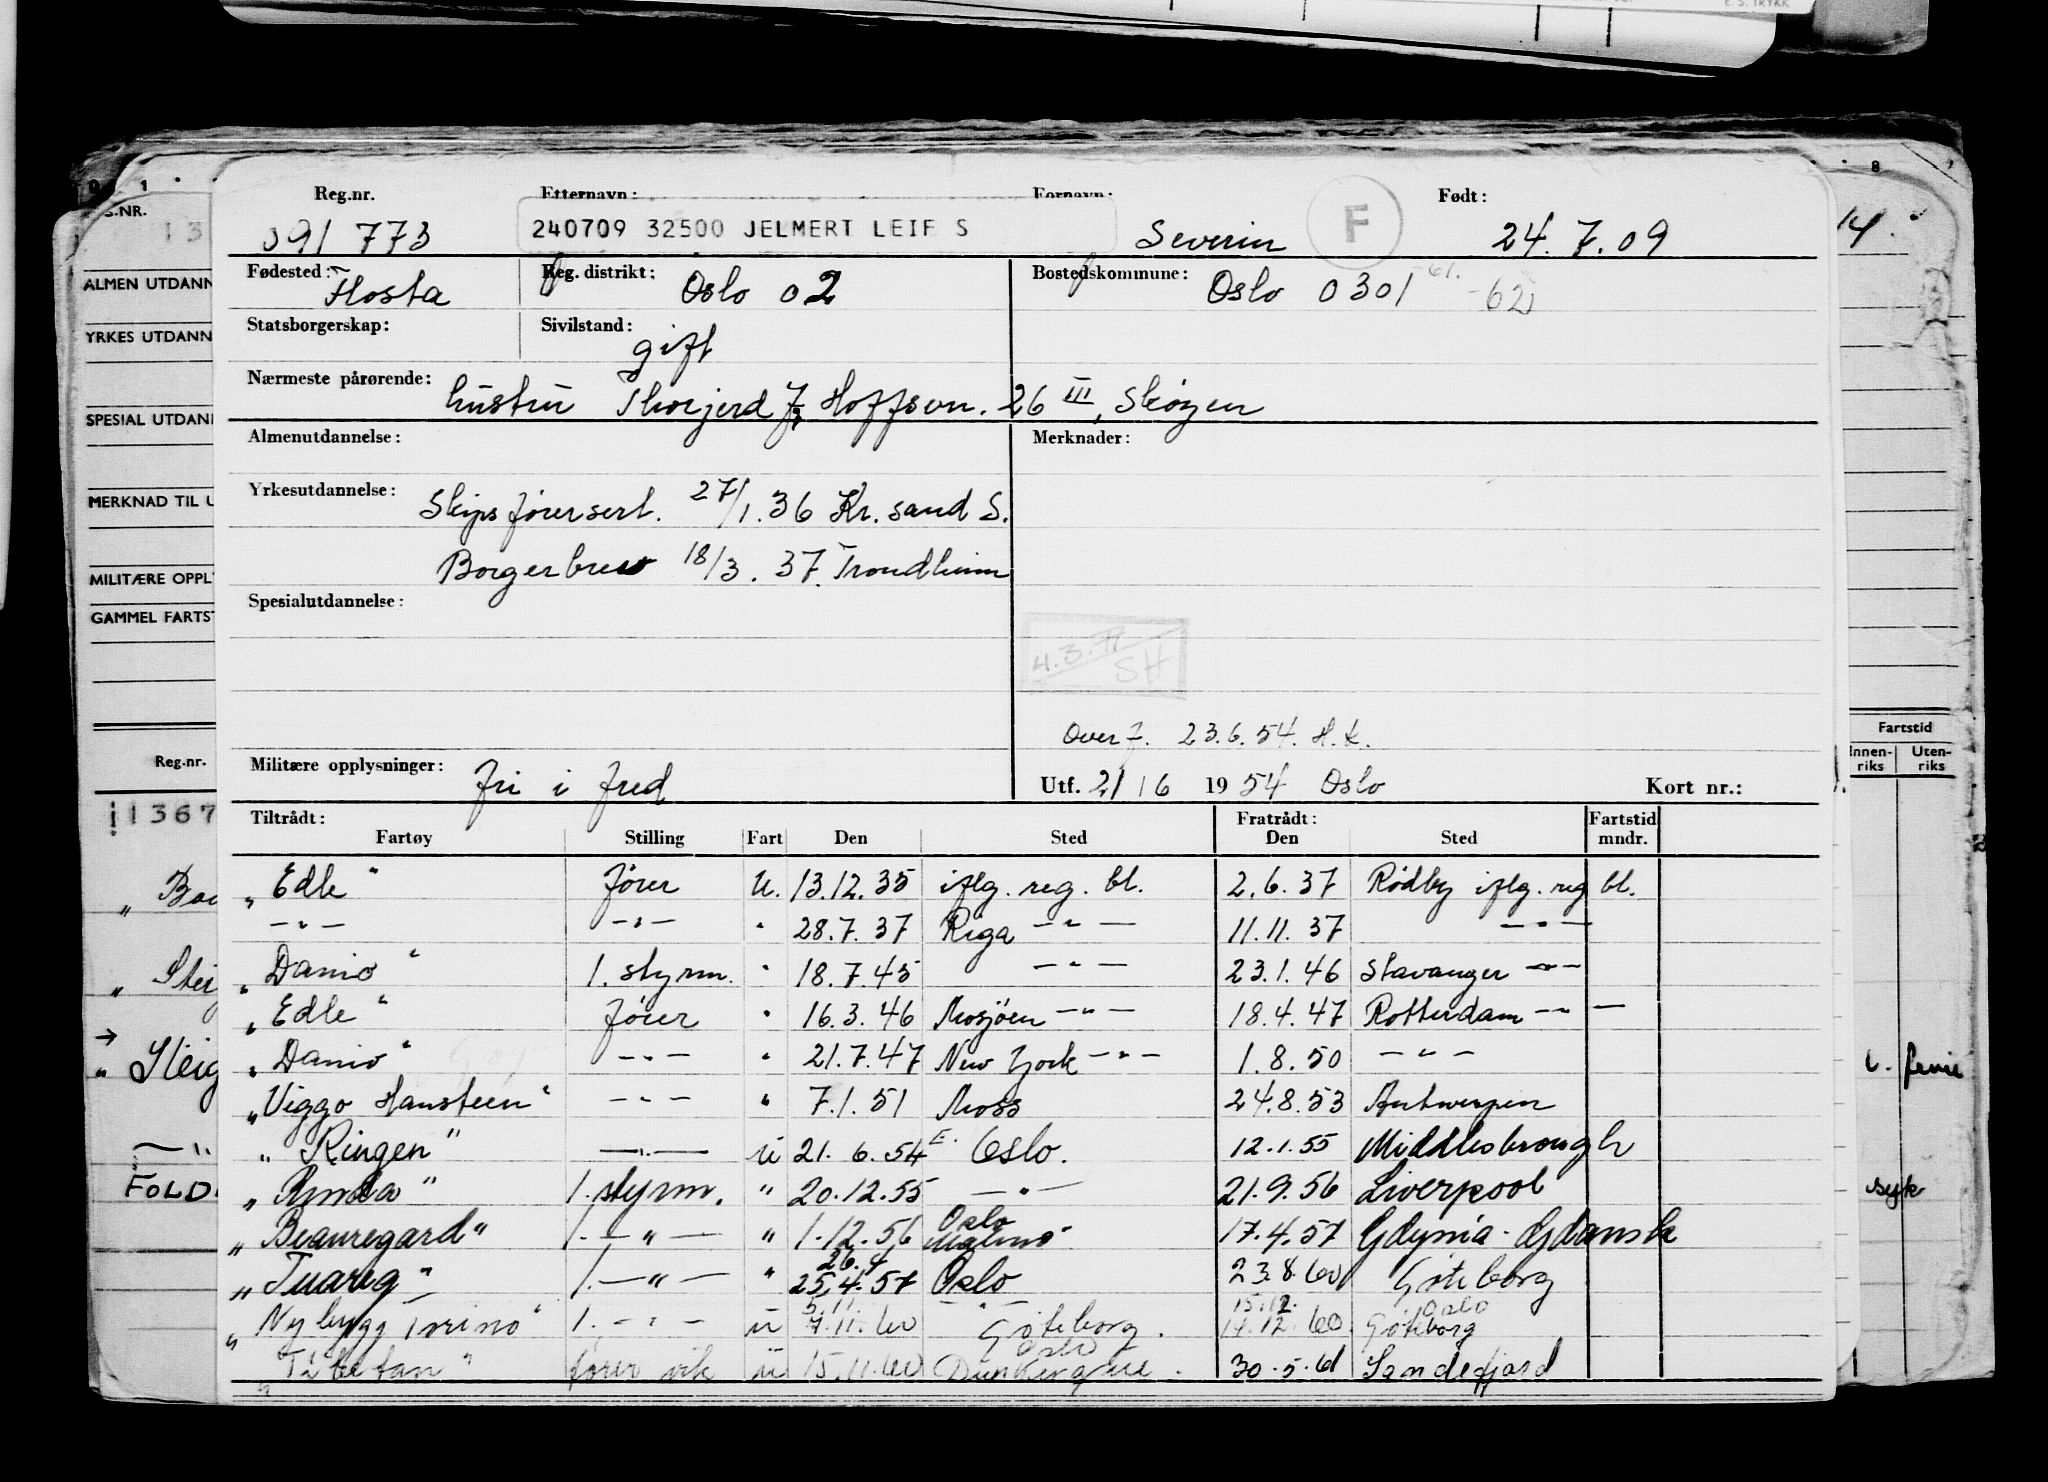 E. S. TRYKK
0 1 8
Reg.nr. Etternavn: Fornavn: Født:
091 773 240709 32500 JELMERT LEIF S Severin F 24.7.09
Fødested: Flosta Reg. distrikt: Oslo 02 Bostedskommune: Oslo 0301 61. -62
Statsborgerskap: Sivilstand: gift
Nærmeste pårørende: hustru Thorjerd J, Hoffsvn. 26 III, Skøyen
Almenutdannelse: Merknader:
Yrkesutdannelse: Skipsførersert. 27/1.36 Kr.sand S.
Borgerbrev 18/3.37. Trondheim
Spesialutdannelse:
4.3.71 SH
Overf. 23.6.54. H.K.
Militære opplysninger: fri i fred Utf. 21/6 1954 Oslo Kort nr.:
Tiltrådt: Fratrådt: Fartstid
Fartøy Stilling Fart Den Sted Den Sted mndr.
„Edle" fører U. 13.12.35 iflg. reg. bl. 2.6.37 Rødby iflg. reg bl.
— " — — " — " 28.7.37 Riga — " — 11.11.37 — " —
„Danio" 1. styrm. " 18.7.45 — " — 23.1.46 Stavanger — " —
„Edle" fører " 16.3.46 Mosjøen — " — 18.4.47 Rotterdam — " —
„Danio" — " — " 21.7.47 New York — " — 1.8.50 — " —
„Viggo Hansteen" — " — " 7.1.51 Moss 24.8.53 Antwerpen
„Ringen" — " — U 21.6.54 Oslo. 12.1.55 Middlesbrough
„Rinda" 1. styrm. " 20.12.55 — " — 21.9.56 Liverpool
„Beauregard" 1. — " — " 1.12.56 Oslo Malmö 17.4.57 Gdynia - Gdansk
„Tuareg" 1. — " — " 26.4 25.4.57 Oslo 23.8.60 Göteborg
„Nybygg Torino" 1. — " — U 5.11 7.11.60 Göteborg. Oslo 15.12. 14.12.60 Oslo Göteborg
„Tibetan" fører vik U 15.11.60 Dunkerque. 30.5.61 Sandefjord
G.NR.
ALMEN UTDANN
YRKES UTDANN
SPESIAL UTDANN
MERKNAD TIL U
MILITÆRE OPPLY
GAMMEL FARTST
Reg.nr.
1367
„Steig
— " —
FOLD
14.
Fartstid
Innen-riks Uten-riks
ferie
syk